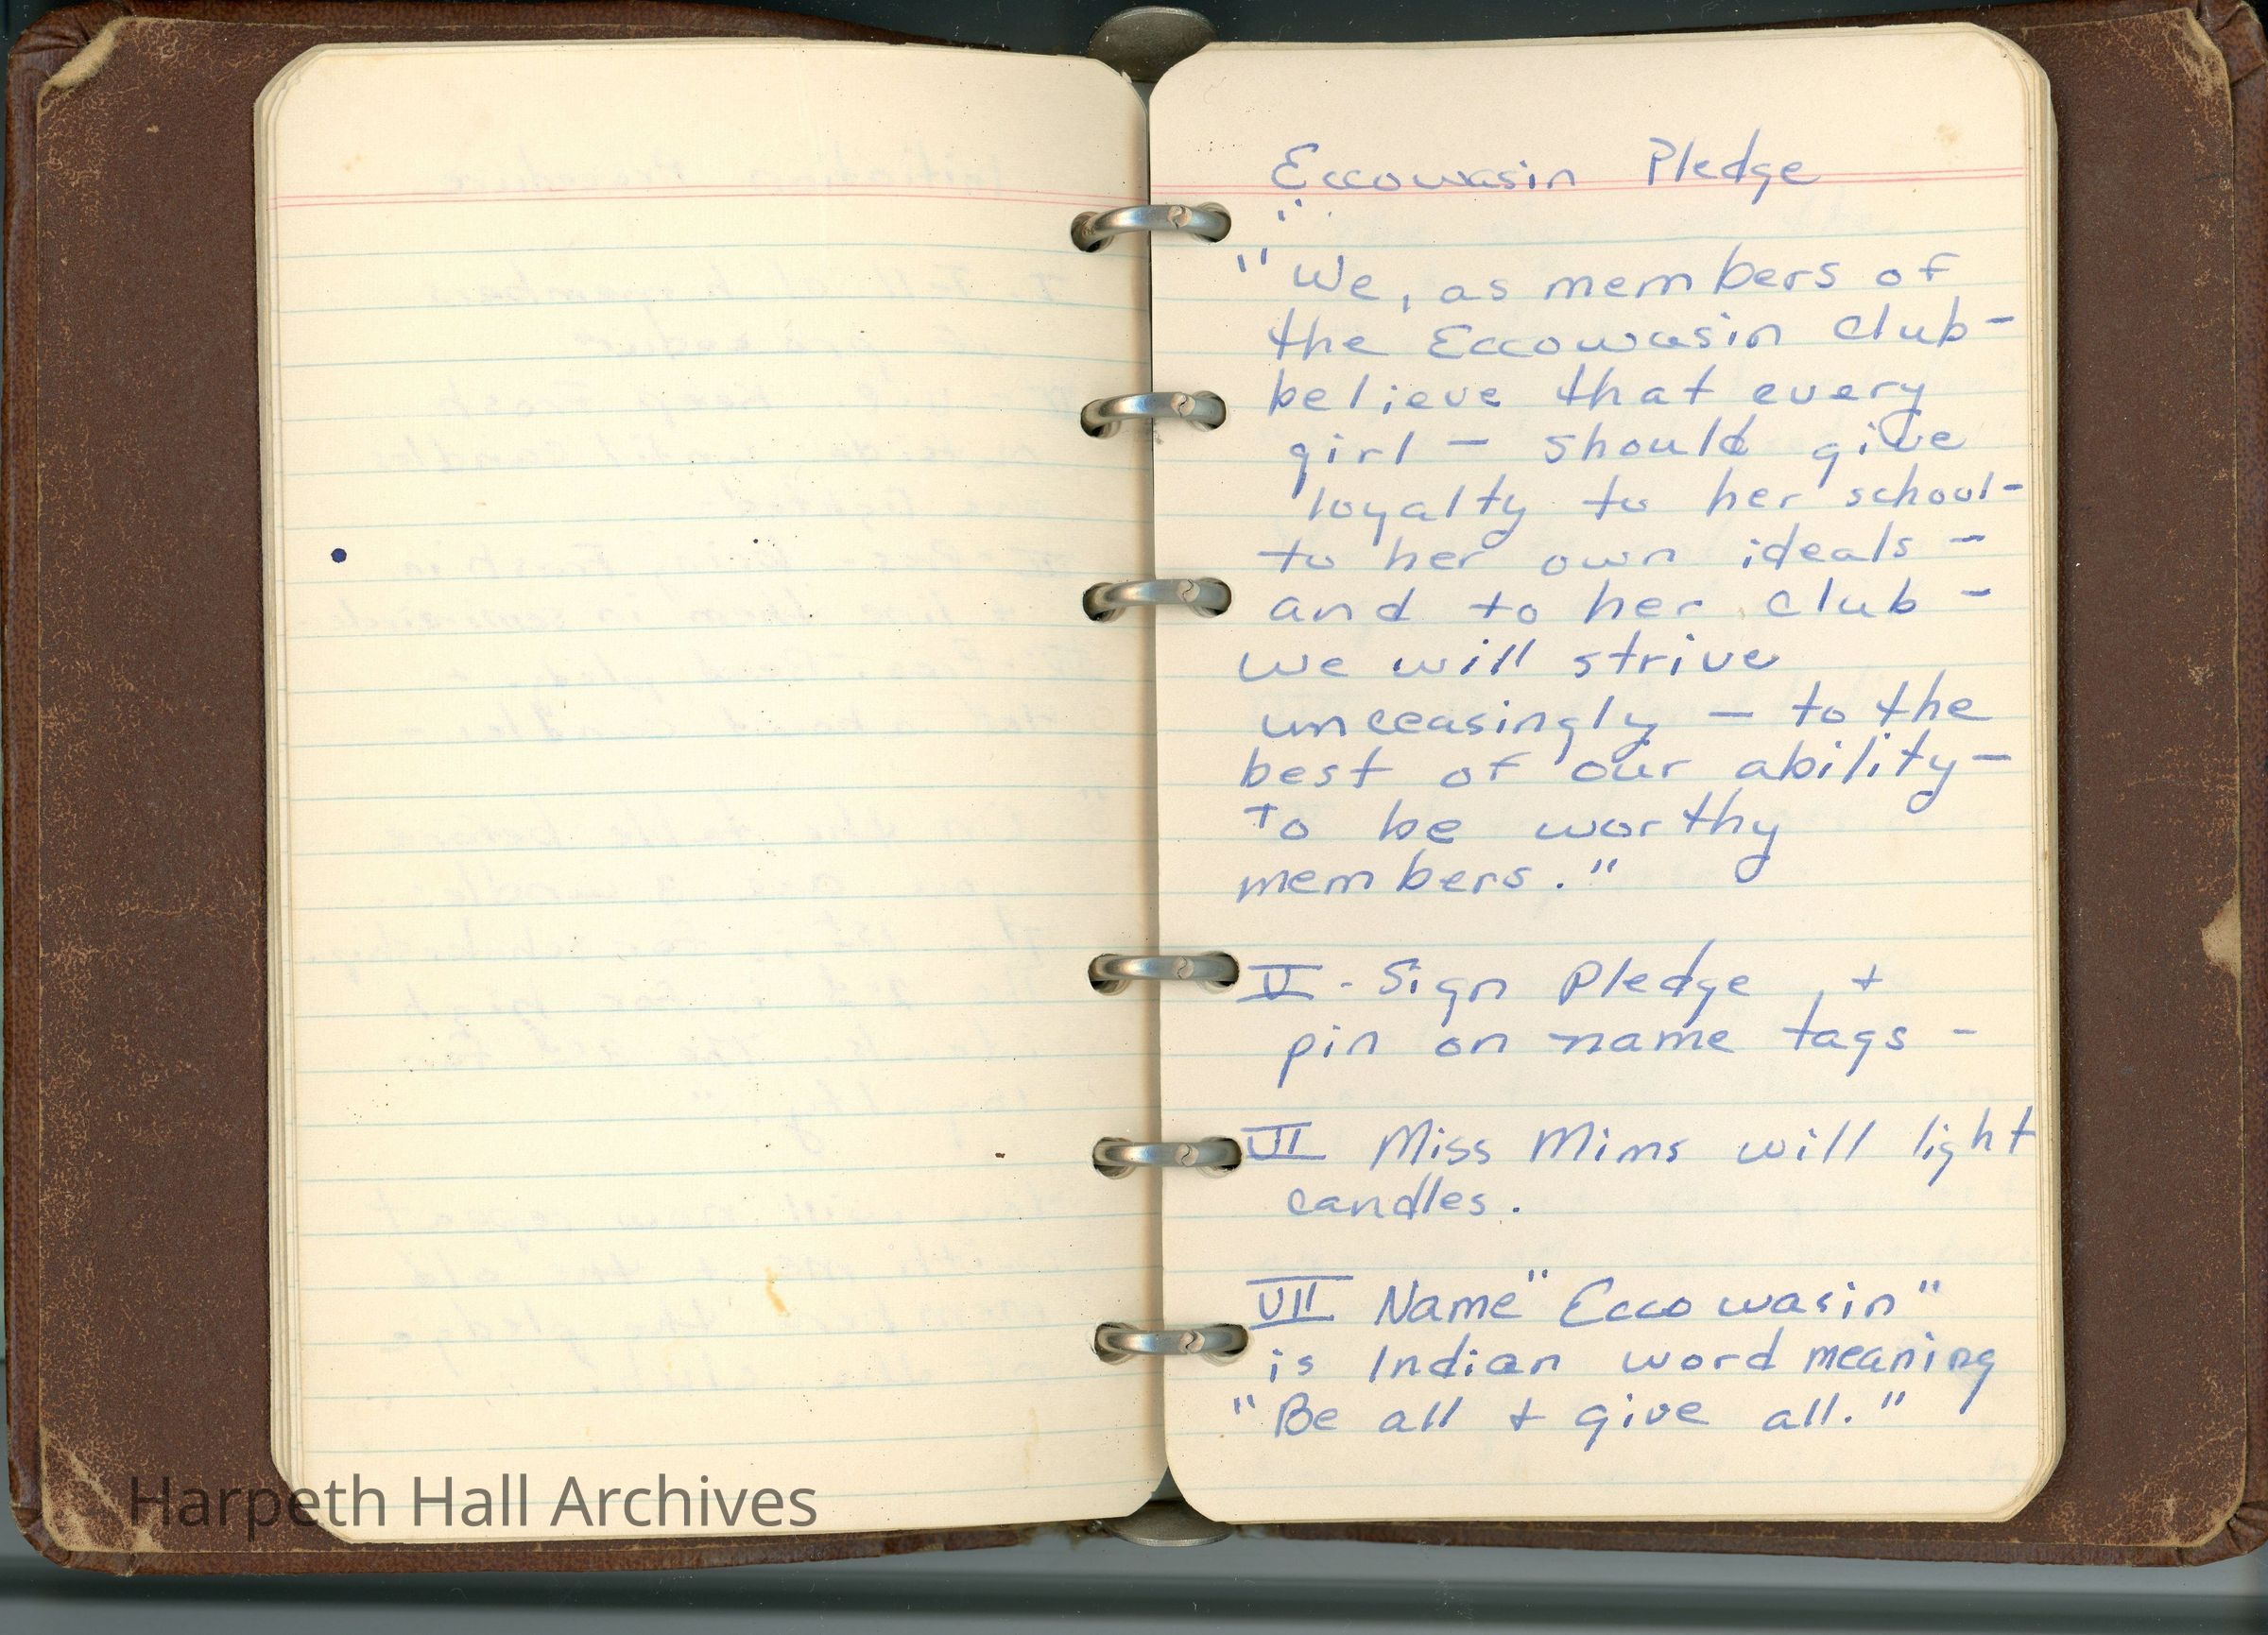 Eccowasin Pledge
"We, as members of
the Eccowasin Club -
believe that every
girl - should give
loyalty to her school -
to her own ideals -
and to her club -
we will strive
unceasingly - to the
best of our ability -
to be worthy
members."
V - Sign Pledge +
pin on name tags -
VI Miss Mims will light
candles.
VII Name "Eccowasin"
is Indian word meaning
"Be all + give all."
Harpeth Hall Archives